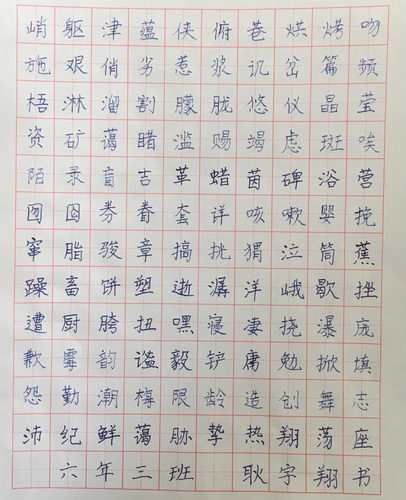 峭躯津蕴侠俯巷烘烤吻
施艰俏劣惹浆讥岔篇频
梧淋溜割朦胧悠仪晶莹
资矿蔼睹滥赐竭虑斑唉
陌录盲吉革蜡茵碑浴营
囫囵券眷套详咳嗽婴挽
窜脂骏章搞挑猬泣筒蕉
躁畜饼塑逝潺洋峨歇挫
遭厨胯扭嘿寝凄挠瀑庞
歉霉韵谧毅铲庸勉掀填
怨勤潮梅限龄造创舞志
沛纪鲜蔼胁挚热翔荡座
六年三班 耿字翔书